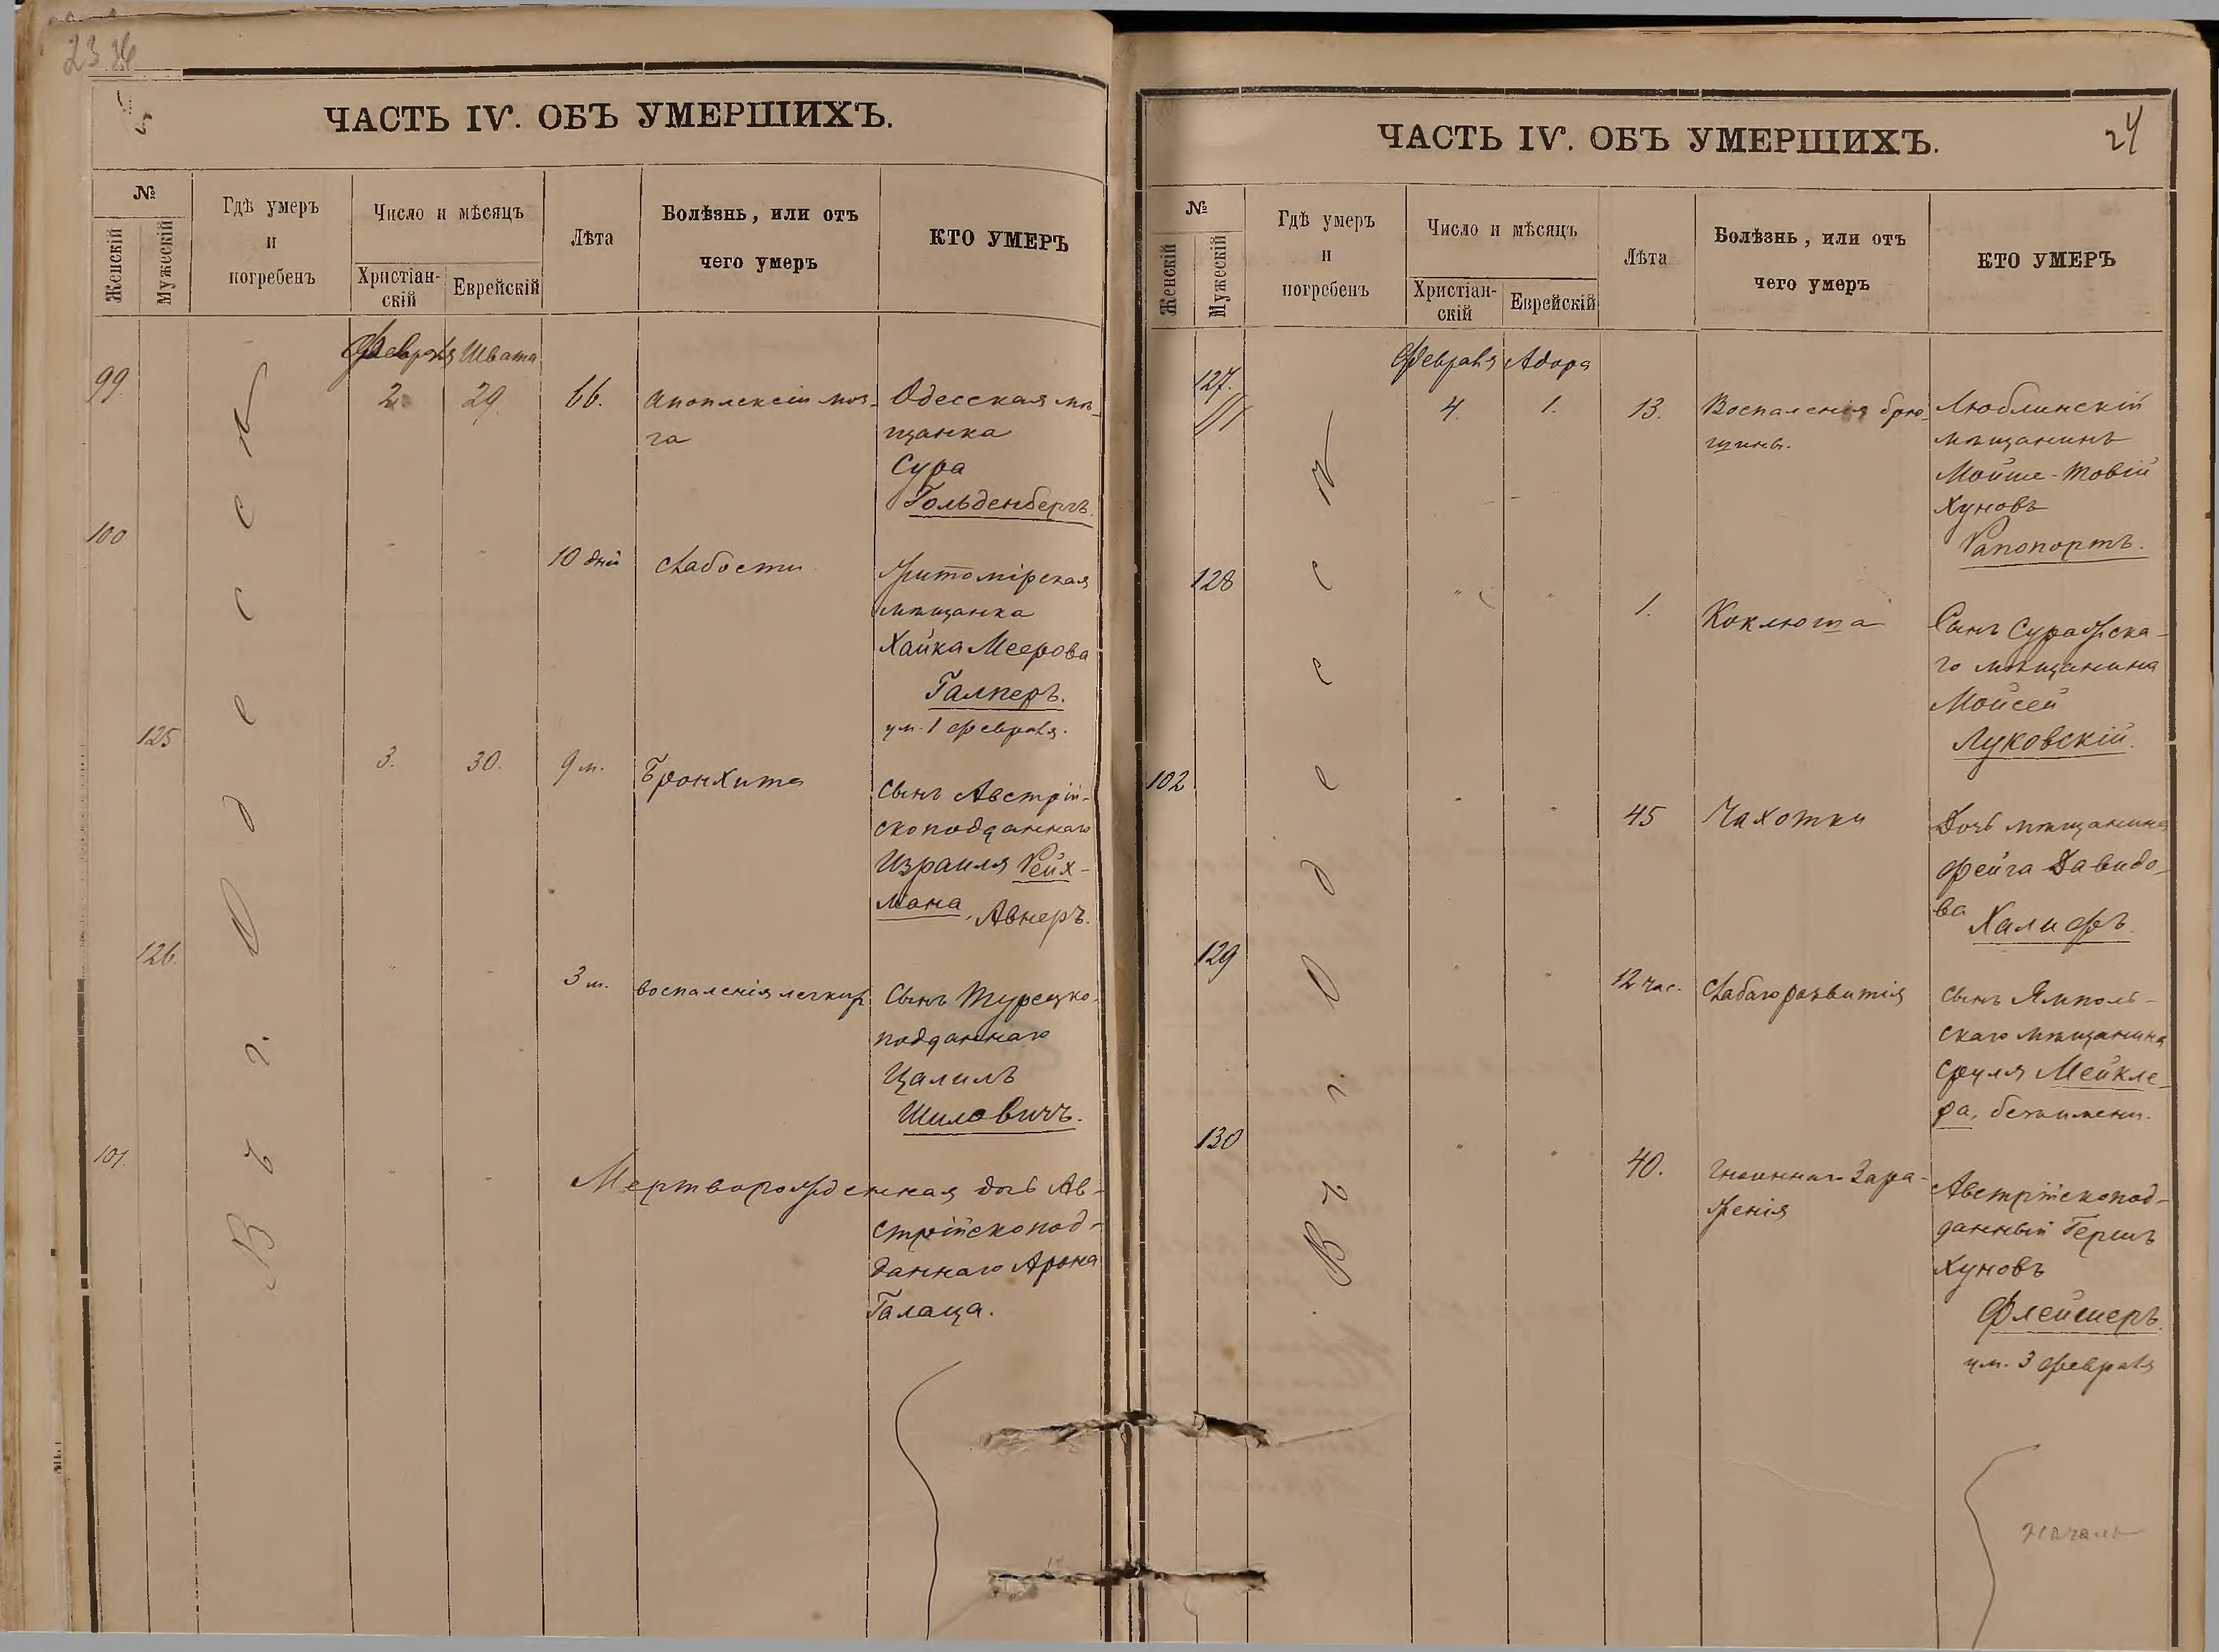 23
ЧАСТЬ IV. ОБЪ УМЕРШИХЪ.
№
Женскій
Мужескій
Гдѣ умеръ
и
погребенъ
Число и мѣсяцъ
Христіан-
скій
Еврейскій
Лѣта
Болѣзнь, или отъ
чего умеръ
КТО УМЕРЪ
Въ Одессѣ
Февраля Швата
99. 2. 29. 66. Апоплексіи моз-
га
Одесская мѣ-
щанка
Сура
Гольденбергъ.
100 " " 10 дній Слабости
Житомірская
мѣщанка
Хайка Меерова
Галперъ.
ум. 1 февраля.
125 3. 30. 9 м. Бронхита
Сынъ Австрій-
скоподданнаго
Израиля Рейх-
мана, Авнеръ.
126. " " 3 м. воспаленія легкихъ
Сынъ Турецко-
подданнаго
Цалилъ
Шиловичъ.
101. " " Мертворожденная дочь Ав-
стрійскопод-
даннаго Арона
Галаца.
ЧАСТЬ IV. ОБЪ УМЕРШИХЪ.
24
№
Женскій
Мужескій
Гдѣ умеръ
и
погребенъ
Число и мѣсяцъ
Христіан-
скій
Еврейскій
Лѣта
Болѣзнь, или отъ
чего умеръ
КТО УМЕРЪ
Въ Одессѣ
Февраля Адара
127. 4. 1. 13. Воспаленія брю-
шины.
Люблинскій
мѣщанинъ
Мойше-Товій
Хуновъ
Рапопортъ.
128 " " 1. Коклюша
Сынъ Суражска-
го мѣщанина
Мойсей
Луковскій.
102 " " 45 Чахотки
Дочь мѣщанина
Фейга Давидо-
ва
Халифъ.
129 " " 12 час. Слабаго развитія
Сынъ Ямполь-
скаго мѣщанина
Сруля Мейкле-
ра, безъ имени.
130 " " 40. Гнойнаго Зара-
женія
Австрійскопод-
данный Гершъ
Хуновъ
Флейшеръ.
ум. 3 февраля